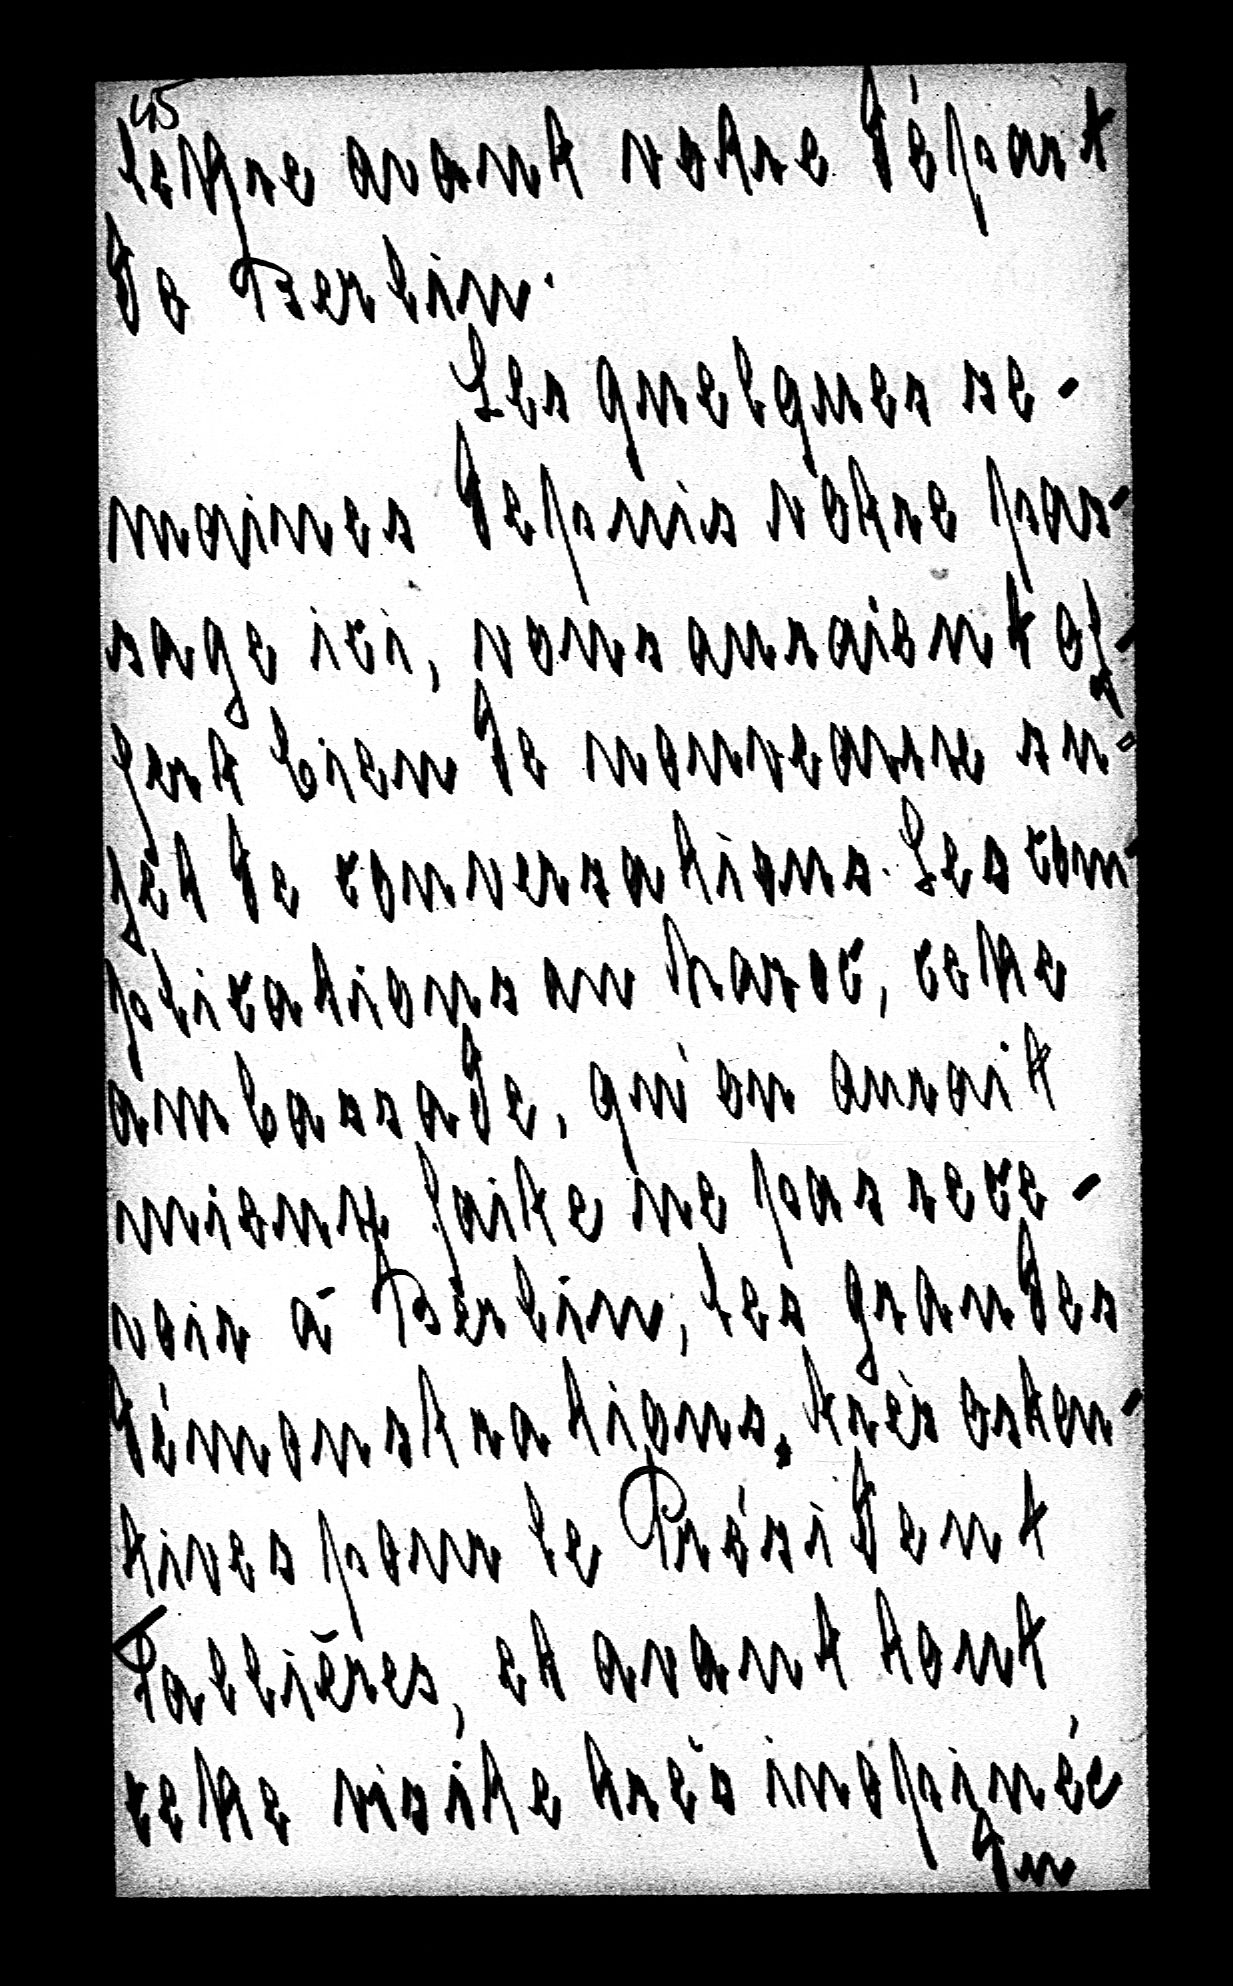 45
lettre avant votre départ
de Berlin.
Les quelques se-
maines depuis votre pas-
sage ici, vous auraient of-
fert bien de nouveaux su-
jet de conversations. Les com-
plications au Maroc, cette
ambassade, qu'on aurait
mieux faite ne pas rece-
voir à Berlin, les grandes
démonstrations, très osten-
tives pour le Président
Fallières, et avant tout
cette visite très inopinée
du